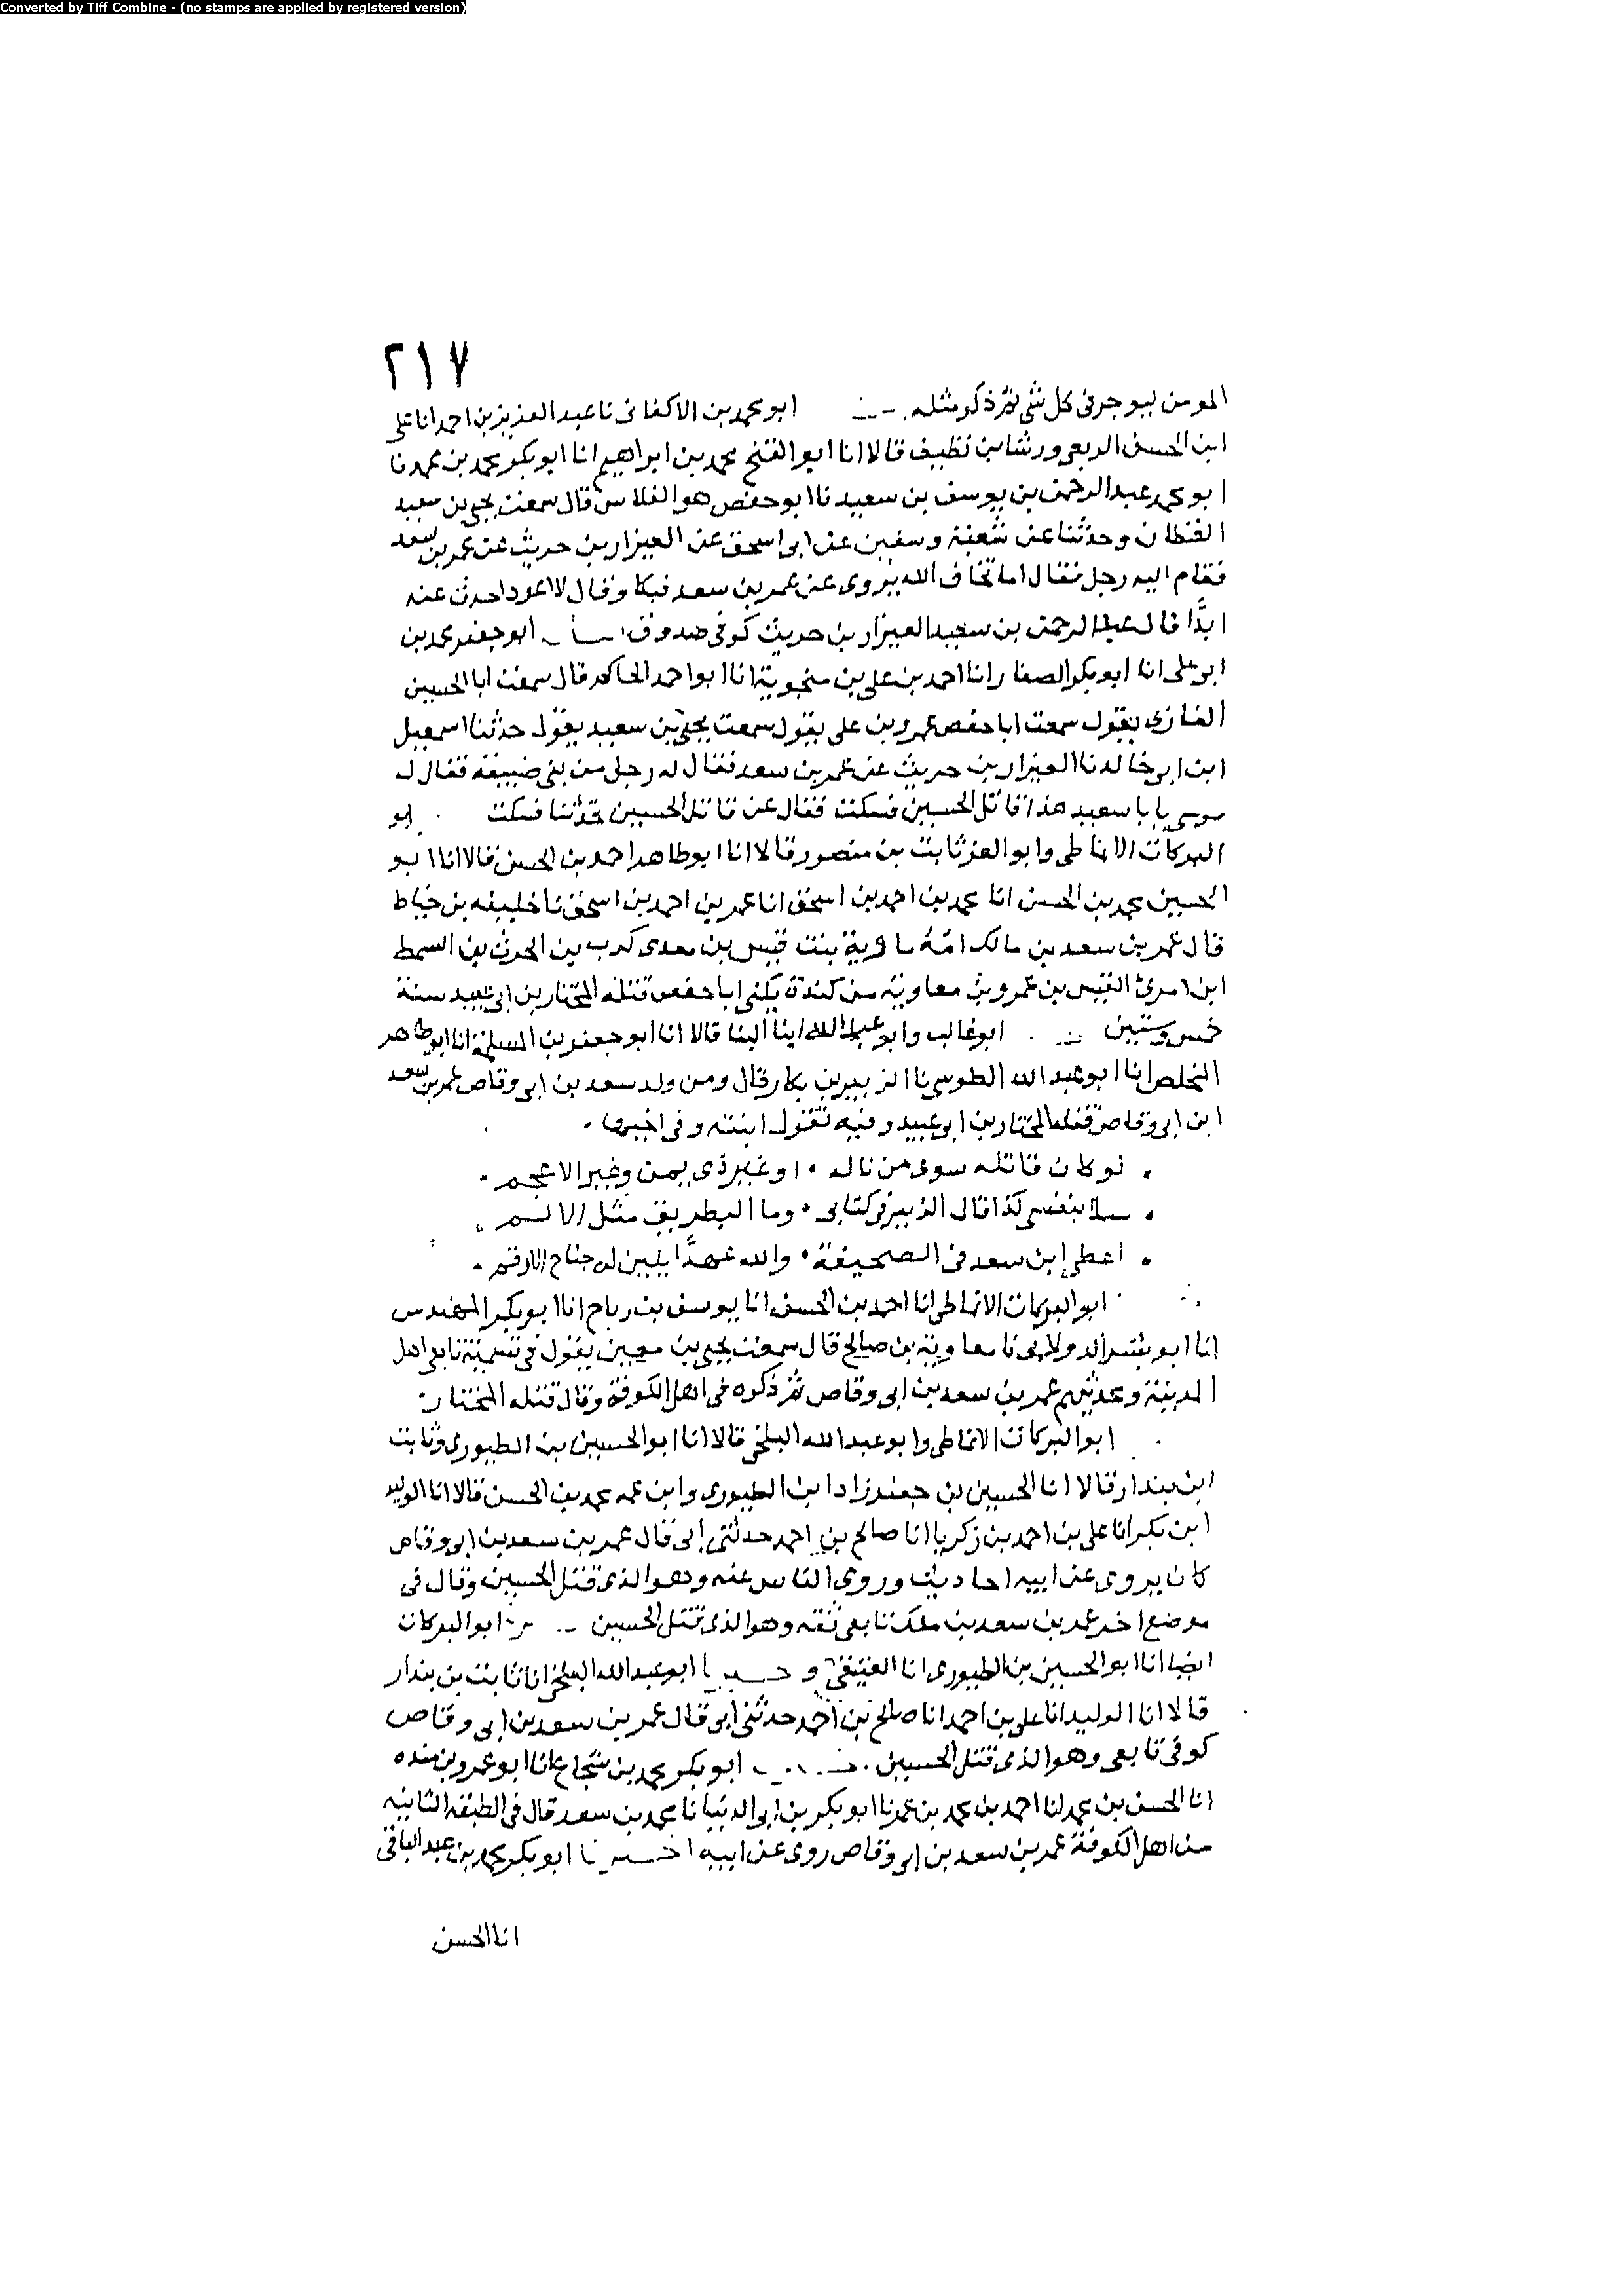 Converted by Tiff Combine - (no stamps are applied by registered version)
٢١٧
المومن ليوجر في كل شي ثم ذكر مثله ابو محمد بن الاكفاني نا عبد العزيز بن احمد انا علي
ابن الحسن الربعي ورشا بن نظيف قالا انا ابو الفتح محمد بن ابراهيم انا ابو بكر محمد بن محمد نا
ابو محمد عبد الرحمن بن يوسف بن سعيد نا ابو حفص هو الفلاس قال سمعت يحيى بن سعيد
القطان وحدثنا عن شعبة وسفين عن ابي اسحق عن العيزار بن حريث عن عمر بن سعد
فقام اليه رجل فقال اما تخاف الله تروي عن عمر بن سعد فبكا وقال لا اعود احدث عنه
ابدًا قال عبد الرحمن بن سعيد العيزار بن حريث كوفي صدوق ابو جعفر محمد بن
ابي علي انا ابو بكر الصفار انا احمد بن علي بن منجوية انا ابو احمد الحاكم قال سمعت ابا الحسين
الغازي يقول سمعت ابا حفص عمرو بن علي يقول سمعت يحيى بن سعيد يقول حدثنا اسمعيل
ابن ابي خالد نا العيزار بن حريث عن عمر بن سعد فقال له رجل من بني ضبيعة فقال له
موسى يا با سعيد هذا قاتل الحسين فسكت فقال عن قاتل الحسين تحدثنا فسكت ابو
البركات الانماطي وابو العز ثابت بن منصور قالا انا ابو طاهر احمد بن الحسن قالا انا ابو
الحسين محمد بن الحسن انا محمد بن احمد بن اسحق انا عمر بن احمد بن اسحق نا خليفه بن خياط
قال عمر بن سعد بن مالك امّه ماوية بنت قيس بن معدي كرب بن الحرث بن السمط
ابن امرئ القيس بن عمرو بن معاوية من كندة يكنى ابا حفص قتله المختار بن ابي عبيد سنة
خمس وستين ابو غالب وابو عبد الله ابنا البنا قالا انا ابو جعفر بن المسلمة انا ابو طاهر
المخلص انا ابو عبد الله الطوسي نا الزبير بن بكار قال ومن ولد سعد بن ابي وقاص عمر بن سعد
ابن ابي وقاص قتله المختار بن ابي عبيد وفيه تقول ابنته وفي اخيها
لو كان قاتله سوى من ناله • او غير ذي يمن وغير الاعجم
بنفسي كذا قال الزبير في كتابي • وما البطريق مثل الا
اعطى ابن سعد في الصحيفة • والله عهدًا يلين له جناح الارقم
ابو البركات الانماطي انا احمد بن الحسن انا يوسف بن رباح انا ابو بكر المهندس
انا ابو بشر الدولابي نا معاوية بن صالح قال سمعت يحيى بن معين يقول في تسمية تابعي اهل
المدينة ومحدثيهم عمر بن سعد بن ابي وقاص ثم ذكره في اهل الكوفة وقال قتله المختار
ابو البركات الانماطي وابو عبد الله البلخي قالا انا ابو الحسين بن الطيوري وثابت
ابن بندار قالا انا الحسين بن جعفر زاد ابن الطيوري وابن عمه محمد بن الحسن قالا انا الوليد
ابن بكر انا علي بن احمد بن زكريا انا صالح بن احمد حدثني ابي قال عمر بن سعد بن ابي وقاص
كان يروي عن ابيه احاديث وروى الناس عنه وهو الذي قتل الحسين وقال في
موضع اخر عمر بن سعد بن ملك تابعي ثقه وهو الذي قتل الحسين ابو البركات
ايضا انا ابو الحسين بن الطيوري انا العتيقي و ابو عبد الله البلخي انا ثابت بن بندار
قالا انا الوليد انا علي بن احمد انا صالح بن احمد حدثني ابي قال عمر بن سعد بن ابي وقاص
كوفي تابعي وهو الذي قتل الحسين ابو بكر محمد بن شجاع انا ابو عمرو بن منده
انا الحسن بن محمد انا احمد بن محمد بن عمر نا ابو بكر بن ابي الدنيا نا محمد بن سعد قال في الطبقه الثانيه
من اهل الكوفة عمر بن سعد بن ابي وقاص روى عن ابيه اخبرنا ابو بكر محمد بن عبد الباقي
انا الحسن